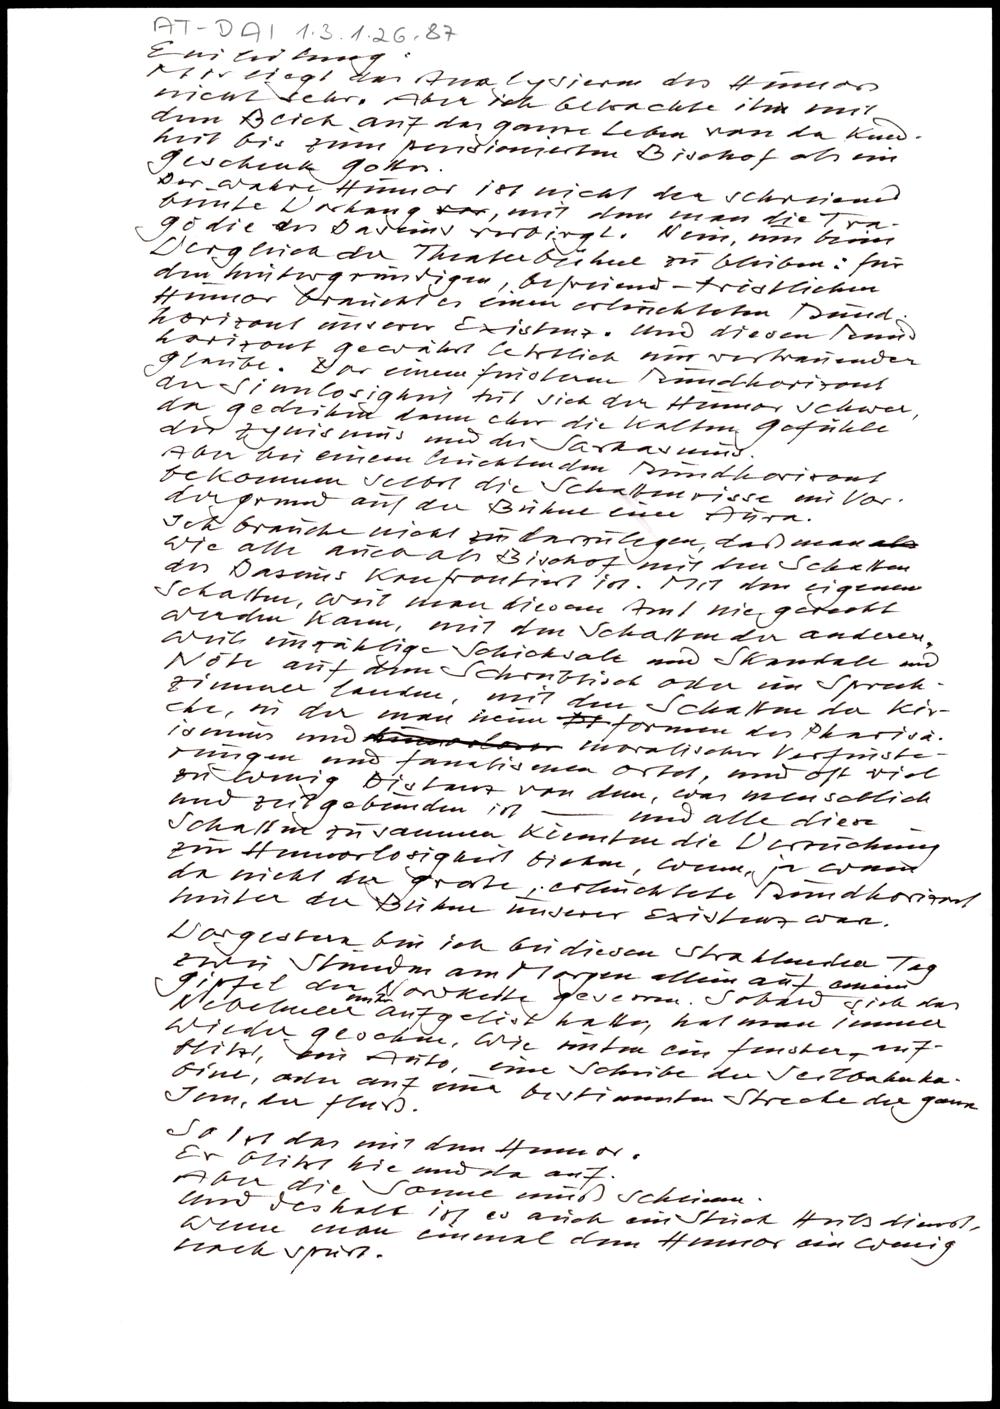 AT-DAI 1.3.1.26.87
Einleitung:
Mir liegt das Analysieren des Humors
nicht sehr. Aber ich betrachte ihn mit
dem Blick auf das ganze Leben von da Kind-
heit bis zum pensionierten Bischof als ein
Geschenk Gottes.
Der wahre Humor ist nicht der schreiend
bunte Vorhang vor, mit dem man die Tra-
gödie des Daseins verbirgt. Nein, um beim
Vergleich der Theaterbühne zu bleiben: für
den hintergründigen, befreiend-tröstlichen
Humor braucht es einen erleuchteten Rund-
horizont unserer Existenz. Und diesen Rund
horizont gewährt letztlich nur vertrauender
Glaube. Vor einem finsteren Rundhorizont
der Sinnlosigkeit tut sich der Humor schwer,
da gedeihen dann eher die kalten Gefühle
der Zynismus und der Sarkasmus.
Aber bei einem leuchtenden Rundhorizont
bekommen selbst die Schattenrisse im Vor-
dergrund auf der Bühne eine Aura.
Ich brauche nicht zu darzulegen, daß man als
wie alle auch als Bischof mit den Schatten
des Daseins konfrontiert ist. Mit den eigenen
Schatten, weil man diesem Amt nie gerecht
werden kann, mit den Schatten der anderen,
weil unzählige Schicksale und Skandale und
Nöte auf dem Schreibtisch oder im Sprech-
zimmer landen, mit den Schatten der Kir-
che, in der man neue Formen des Pharisä-
ismus und humorloser moralischer Verfinste-
rungen und fanatischen ortet, und oft viel
zu wenig Distanz von dem, was menschlich
und zeitgebunden ist — und alle diese
Schatten zusammen könnten die Versuchung
zur Humorlosigkeit bieten, wenn, ja wenn
da nicht der große, erleuchtete Rundhorizont
hinter der Bühne unserer Existenz wär.
Vorgestern bin ich bei diesem strahlenden Tag
zwei Stunden am Morgen allein auf einem
Gipfel der Nordkette gesessen. Sobald sich das
Nebelmeer unten aufgelöst hatte, hat man immer
wieder gesehen, wie unten ein Fenster auf-
blitzt, ein Auto, eine Scheibe der Seilbahnka-
bine, oder auf einer bestimmten Strecke der ganze
Inn, der Fluß.
So ist das mit dem Humor.
Er blitzt hie und da auf.
Aber die Sonne muß scheinen.
Und deshalb ist es auch ein Stück Heilsdienst,
wenn man einmal dem Humor ein wenig
nachspürt.